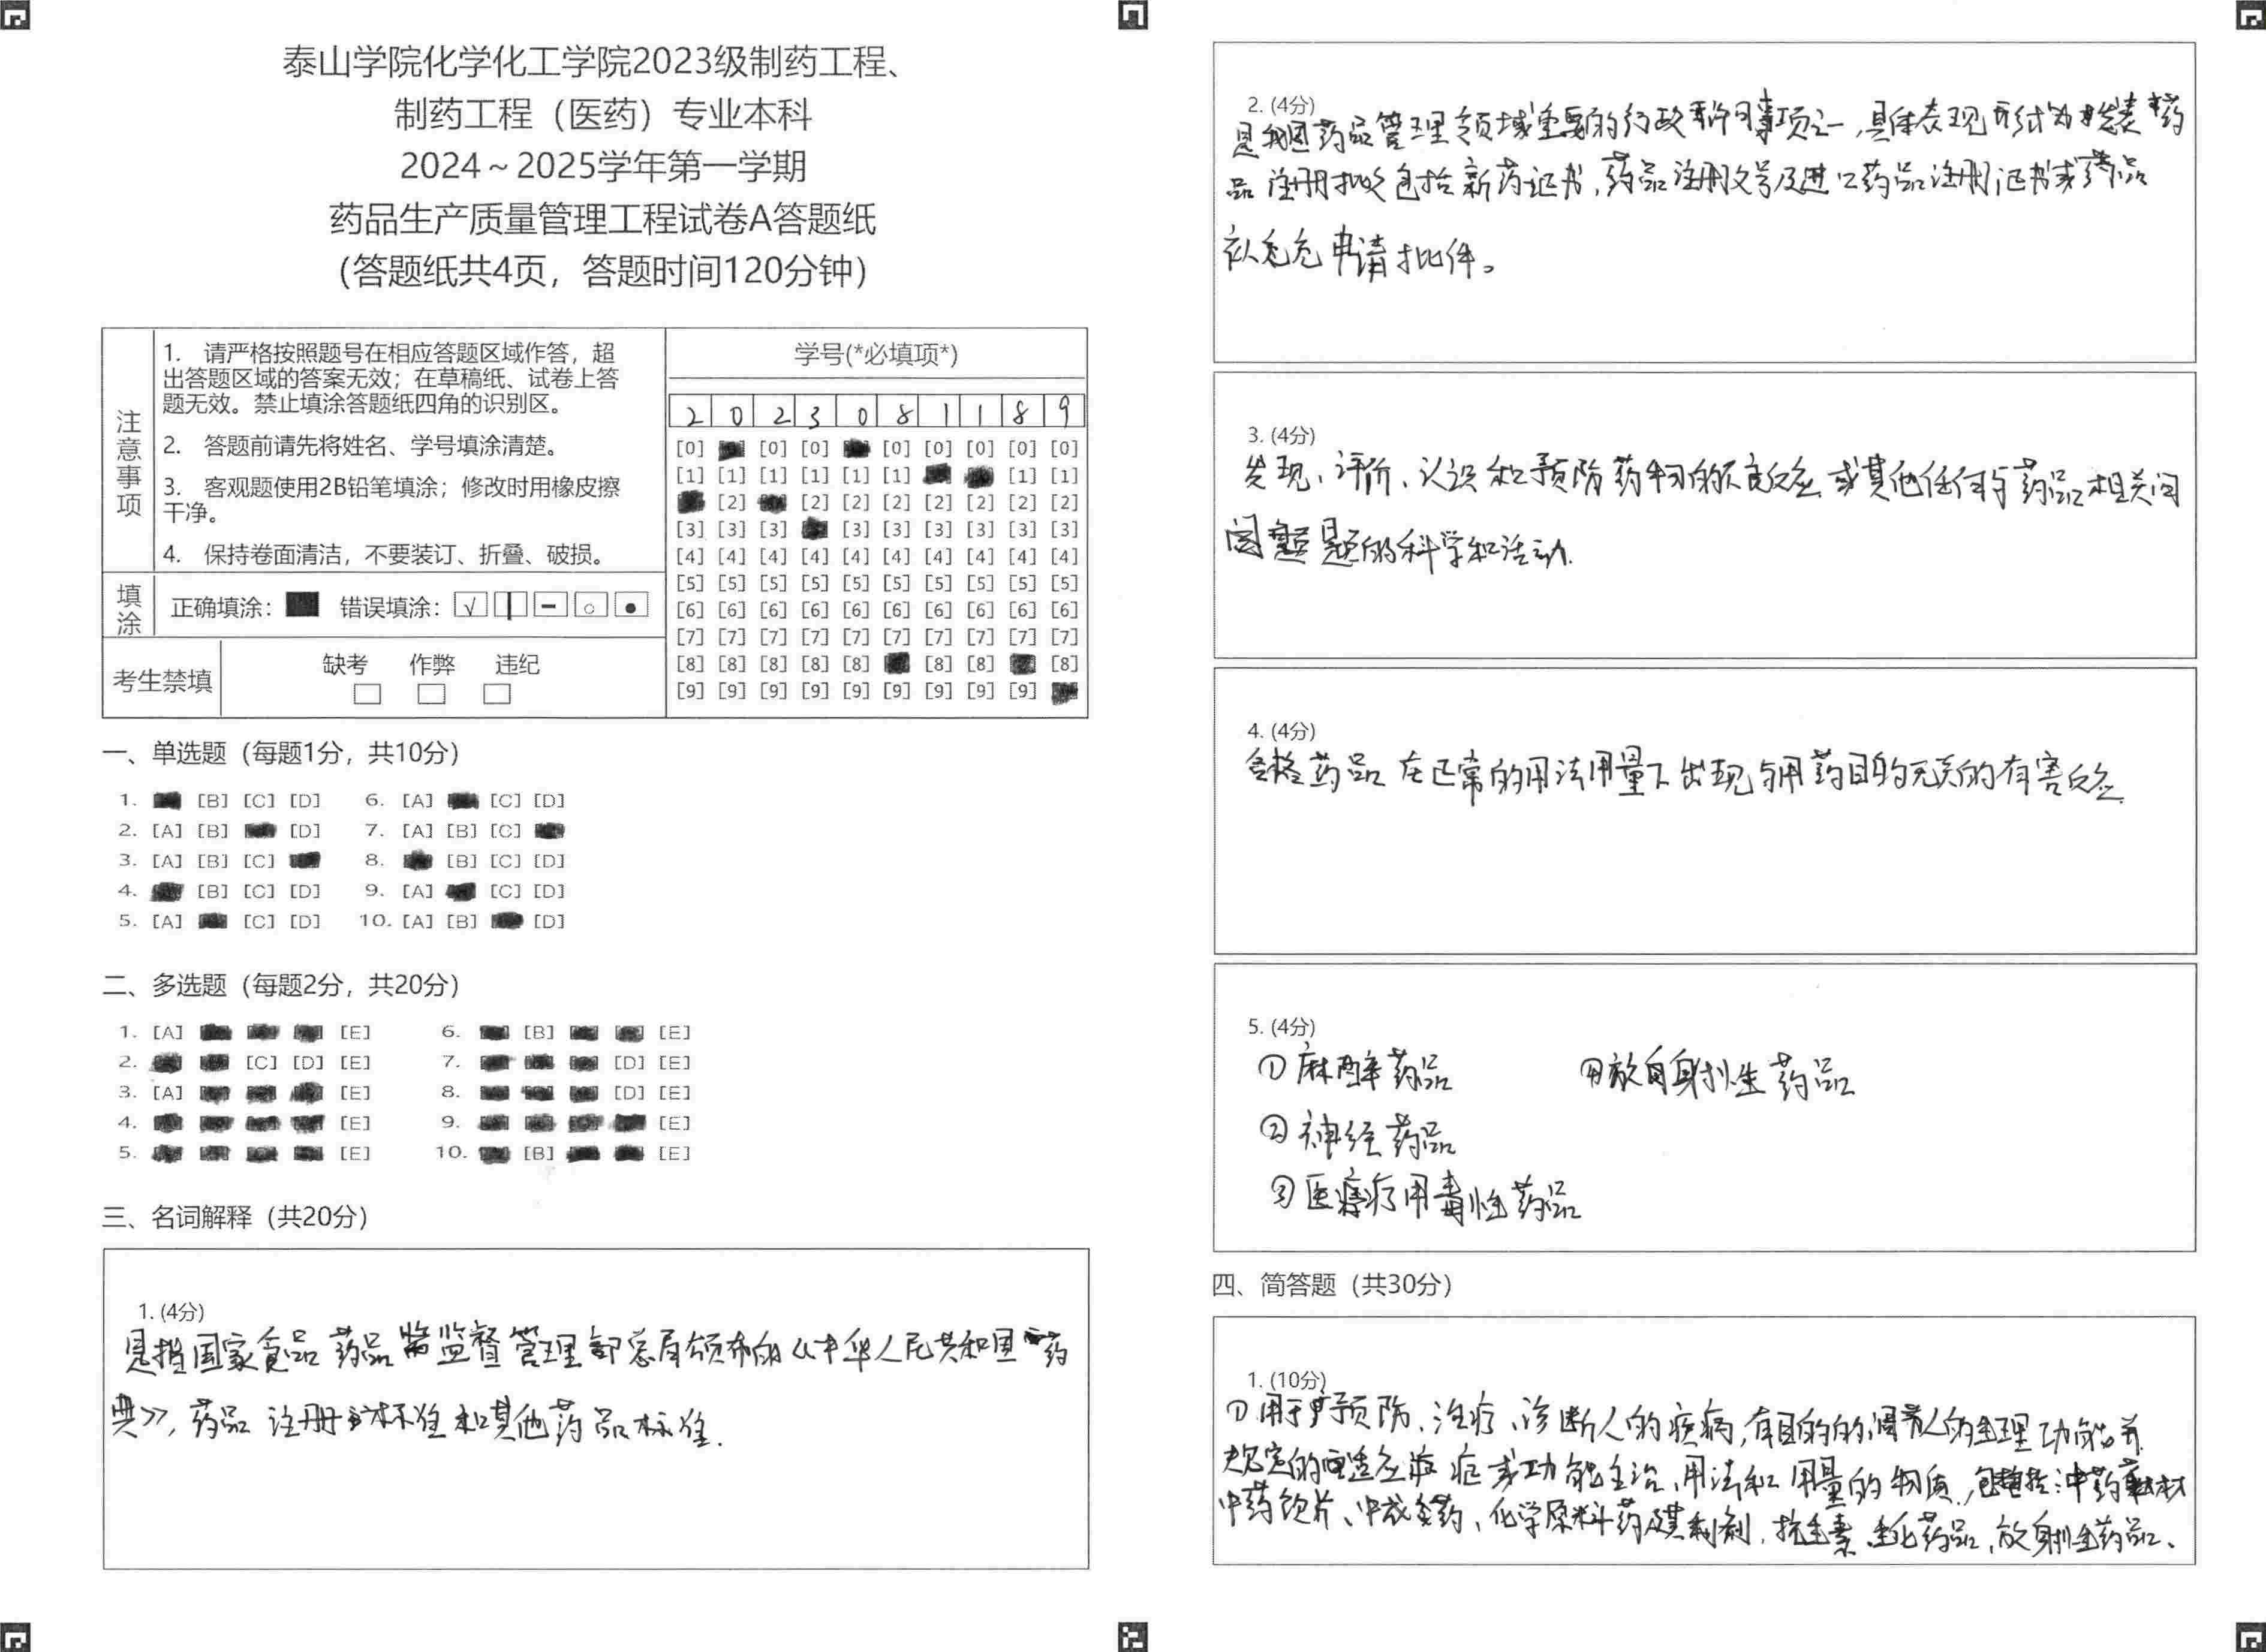 泰山学院化学化工学院2023级制药工程、
制药工程（医药）专业本科
2024～2025学年第一学期
药品生产质量管理工程试卷A答题纸
（答题纸共4页，答题时间120分钟）
注意事项
1. 请严格按照题号在相应答题区域作答，超
出答题区域的答案无效；在草稿纸、试卷上答
题无效。禁止填涂答题纸四角的识别区。
2. 答题前请先将姓名、学号填涂清楚。
3. 客观题使用2B铅笔填涂；修改时用橡皮擦
干净。
4. 保持卷面清洁，不要装订、折叠、破损。
填涂
正确填涂： 错误填涂：
考生禁填
缺考 作弊 违纪
学号(*必填项*)
2 0 2 3 0 8 1 1 8 9
[0] [0] [0] [0] [0] [0] [0] [0]
[1] [1] [1] [1] [1] [1] [1] [1]
[2] [2] [2] [2] [2] [2] [2] [2]
[3] [3] [3] [3] [3] [3] [3] [3] [3]
[4] [4] [4] [4] [4] [4] [4] [4] [4] [4]
[5] [5] [5] [5] [5] [5] [5] [5] [5] [5]
[6] [6] [6] [6] [6] [6] [6] [6] [6] [6]
[7] [7] [7] [7] [7] [7] [7] [7] [7] [7]
[8] [8] [8] [8] [8] [8] [8] [8]
[9] [9] [9] [9] [9] [9] [9] [9] [9]
一、单选题（每题1分，共10分）
1. [B] [C] [D] 6. [A] [C] [D]
2. [A] [B] [D] 7. [A] [B] [C]
3. [A] [B] [C] 8. [B] [C] [D]
4. [B] [C] [D] 9. [A] [C] [D]
5. [A] [C] [D] 10. [A] [B] [D]
二、多选题（每题2分，共20分）
1. [A] [E] 6. [B] [E]
2. [C] [D] [E] 7. [D] [E]
3. [A] [E] 8. [D] [E]
4. [E] 9. [E]
5. [E] 10. [B] [E]
三、名词解释（共20分）
1. (4分)
是指国家食品药品监督管理总局颁布的《中华人民共和国药
典》，药品注册标准和其他药品标准.
2. (4分)
是我国药品管理领域重要的行政许可事项之一，具体表现形式为药
品注册批文包括新药证书，药品注册文号及进口药品注册证书或药品
申请批件。
3. (4分)
发现、评价、认识和预防药物的不良反应或其他任何与药品相关问
题的科学和活动.
4. (4分)
合格药品在正常的用法用量下出现与用药目的无关的有害反应.
5. (4分)
①麻醉药品 ④放射性药品
②神经药品
③医疗用毒性药品
四、简答题（共30分）
1. (10分)
①用于预防、治疗、诊断人的疾病，有目的的调节人的生理功能并
规定的适应症或功能主治、用法和用量的物质，包括：中药材
中药饮片、中成药、化学原料药及其制剂，抗生素、生化药品，放射性药品、